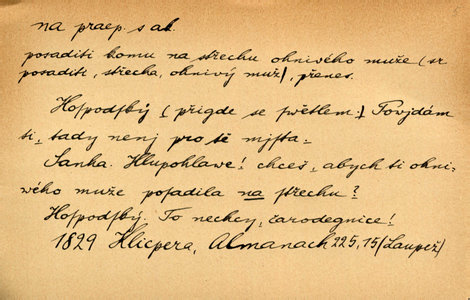 na praep. s ak.
posaditi komu na střechu ohnivého muže (sr
posaditi, střecha, ohnivý muž), přenes.
Hospodſký (přigde se swětlem.) Powjdám
ti, tady nenj pro tě mjſta.
Sanka. Hlupohlawe! chceš, abych ti ohni-
wého muže poſadila na ſtřechu?
Hoſpodſký. To nechey, čarodegnice!
1829 Klicpera, Almanach 225, 15 (Laupež)